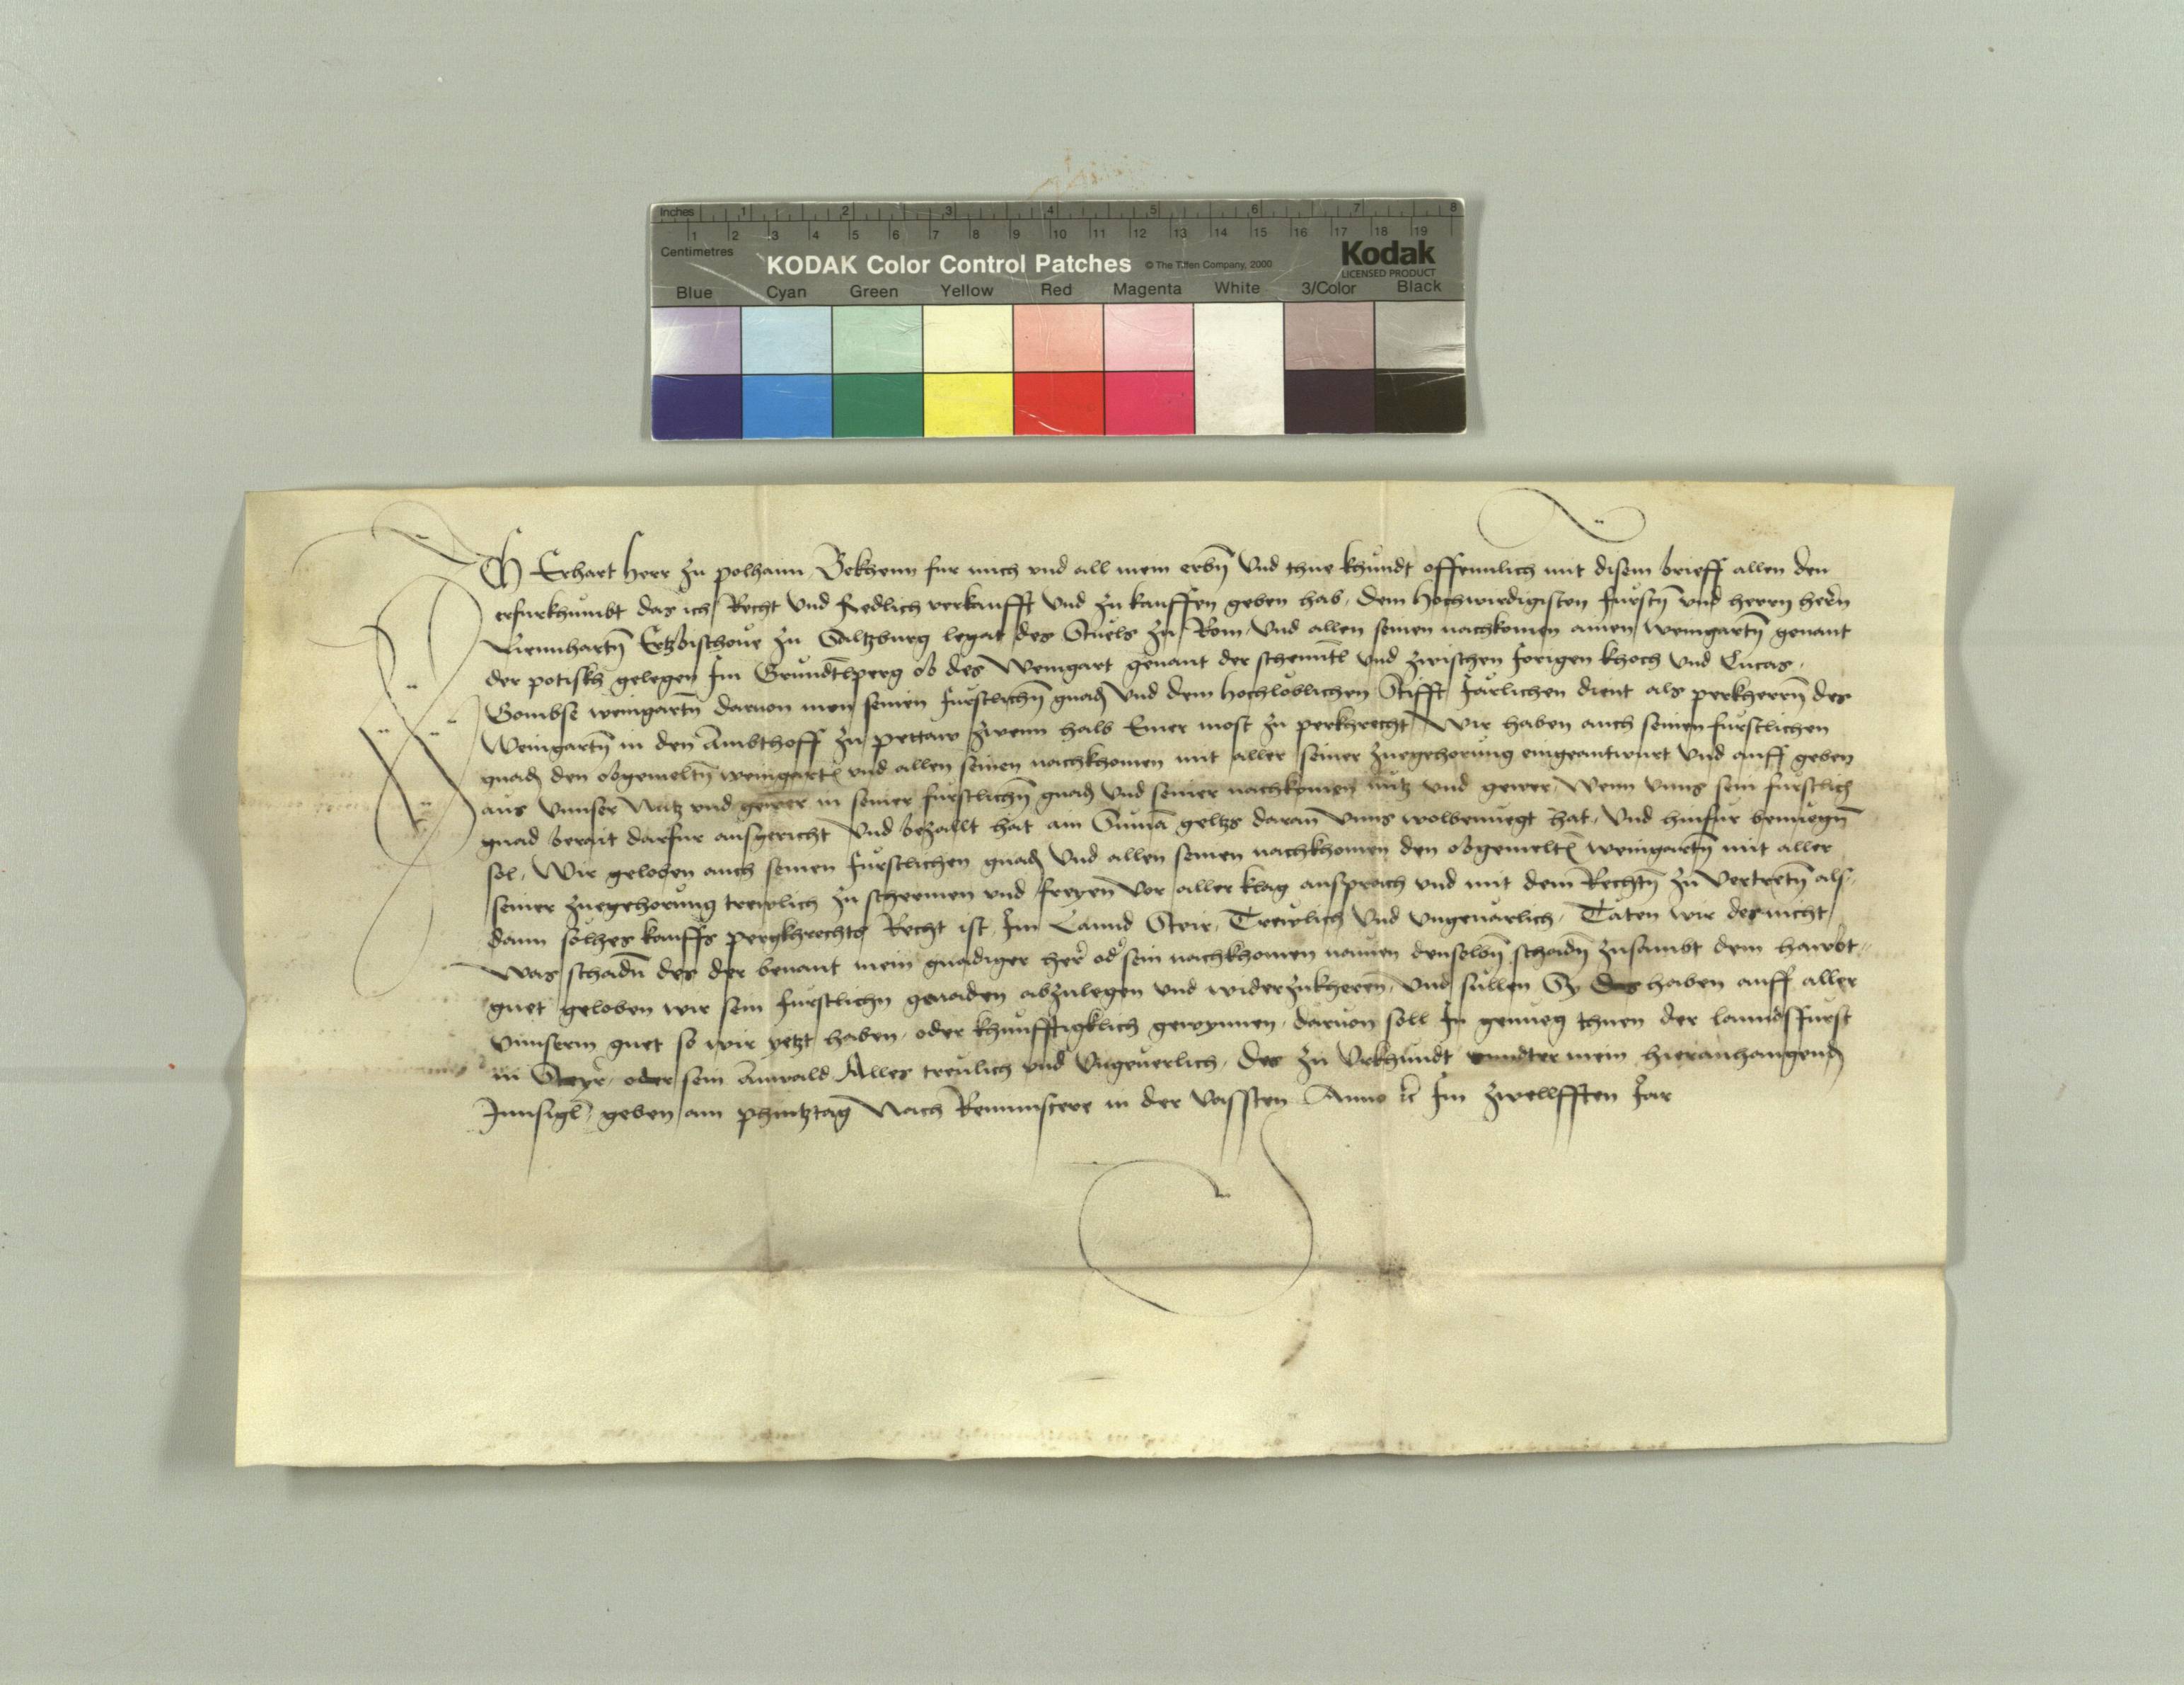 Inches 1 2 3 4 5 6 7 8
1 2 3 4 5 6 7 8 9 10 11 12 13 14 15 16 17 18 19
Centimetres
KODAK Color Control Patches © The Tiffen Company, 2000 Kodak
LICENSED PRODUCT
Blue Cyan Green Yellow Red Magenta White 3/Color Black
Ich Erhart Herr zu polhaim Bekhenn fur mich vnd all mein erbn̄ Vnd thue khundt offennlich mit disem brieff allen den
erfurkhumbt das ich Recht Vnd Redlich verkaufft Vnd zu kauffen geben hab, dem Hochwirdigisten furstn̄ vnd herrn hern
Liennhartn̄ Ertzbischoue zu Saltzburg legat des Stuels zu Rom, Vnd allen seinen nachkomen ainen weingartn̄ genant
der potiskh gelegen Im Grundtlperg ob des Weingart genant der schenntl Vnd zwischen Jorigen khoch Vnd Lucas
Gombse weingartn̄ dauon men seinen furstlichn̄ gnadn Vnd dem hochloblichen Stifft Jarlichen dient als perkherrn̄ des
Weingartn̄ in den Ambthoff zu pettaw zwenn halb Emer most zu perkhrecht, Wir haben auch seinen furstlichen
gnadn den obgemeltn̄ weingartn vnd allen seinen nachkhomen mit aller seiner zuegehorung eingeantwurt Vnd auff geben
aus Vnnser Nutz vnd gewer in seiner furstlichn̄ gnadn Vnd seiner nachkomen nutz vnd gewer, Wenn Vnns sein furstlich
gnad berait darfur ausgericht Vnd bezallt hat am Suma geltzs daran Vnns wolbenuegt hat, Vnd hinfur benuegn̄
sol, Wir geloben auch seinen furstlichen gnadn Vnd allen seinen nachkhomen den obgemeltn weingartn̄ mit aller
seiner zuegehorung trewlich zu schermen vnd freyen Vor aller klag ansprach vnd mit dem Rechtn̄ zu Vertretn̄ als
dann solhes kauffs pergkhrechts Recht ist Im Lannd Steir, Trewlich Vnd Vngeuarlich, Täten wir des nicht
Was schadn̄ des der benant mein gnadiger her od' sein nachkhomen namen denselbn̄ schadn̄ zusambt dem hawbt
guet geloben wir sein furstlichn gnaden abzulegen vnd widerzukheren, Vnd sullen Sy das haben auff aller
Vnnserm guet so wir yetzt haben oder khunfftigklich gewynnen, dauon soll In genueg thuen der lanndsfurst
in Steyr, oder sein Anwald Alles treulich vnd Vngeuerlich, des zu Vrkhundt vnndter mein hieranhangendn
Innsigl, geben am phintztag Nach Reminiscere in der Vassten Anno etc Im zwellfften Jar